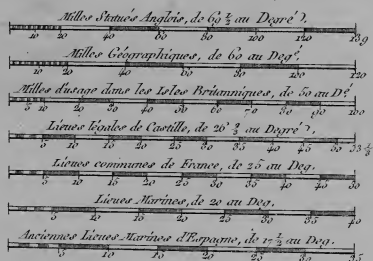 Milles Statués Anglois, de 69 ½ au Degré.
10 20 40 60 80 100 120 139
Milles Géographiques, de 60 au Deg.
10 20 40 60 80 100 120
Milles d'usage dans les Isles Britanniques, de 50 au D.
5 10 20 30 40 50 60 70 80 90 100
Lieues légales de Castille, de 26 ⅔ au Degré.
5 10 15 20 25 30 35 40 45 50 53 ⅓
Lieues communes de France, de 25 au Deg.
5 10 15 20 25 30 35 40 45 50
Lieues Marines, de 20 au Deg.
5 10 15 20 25 30 35 40
Anciennes Lieues Marines d'Espagne, de 17 ½ au Deg.
5 10 15 20 25 30 35